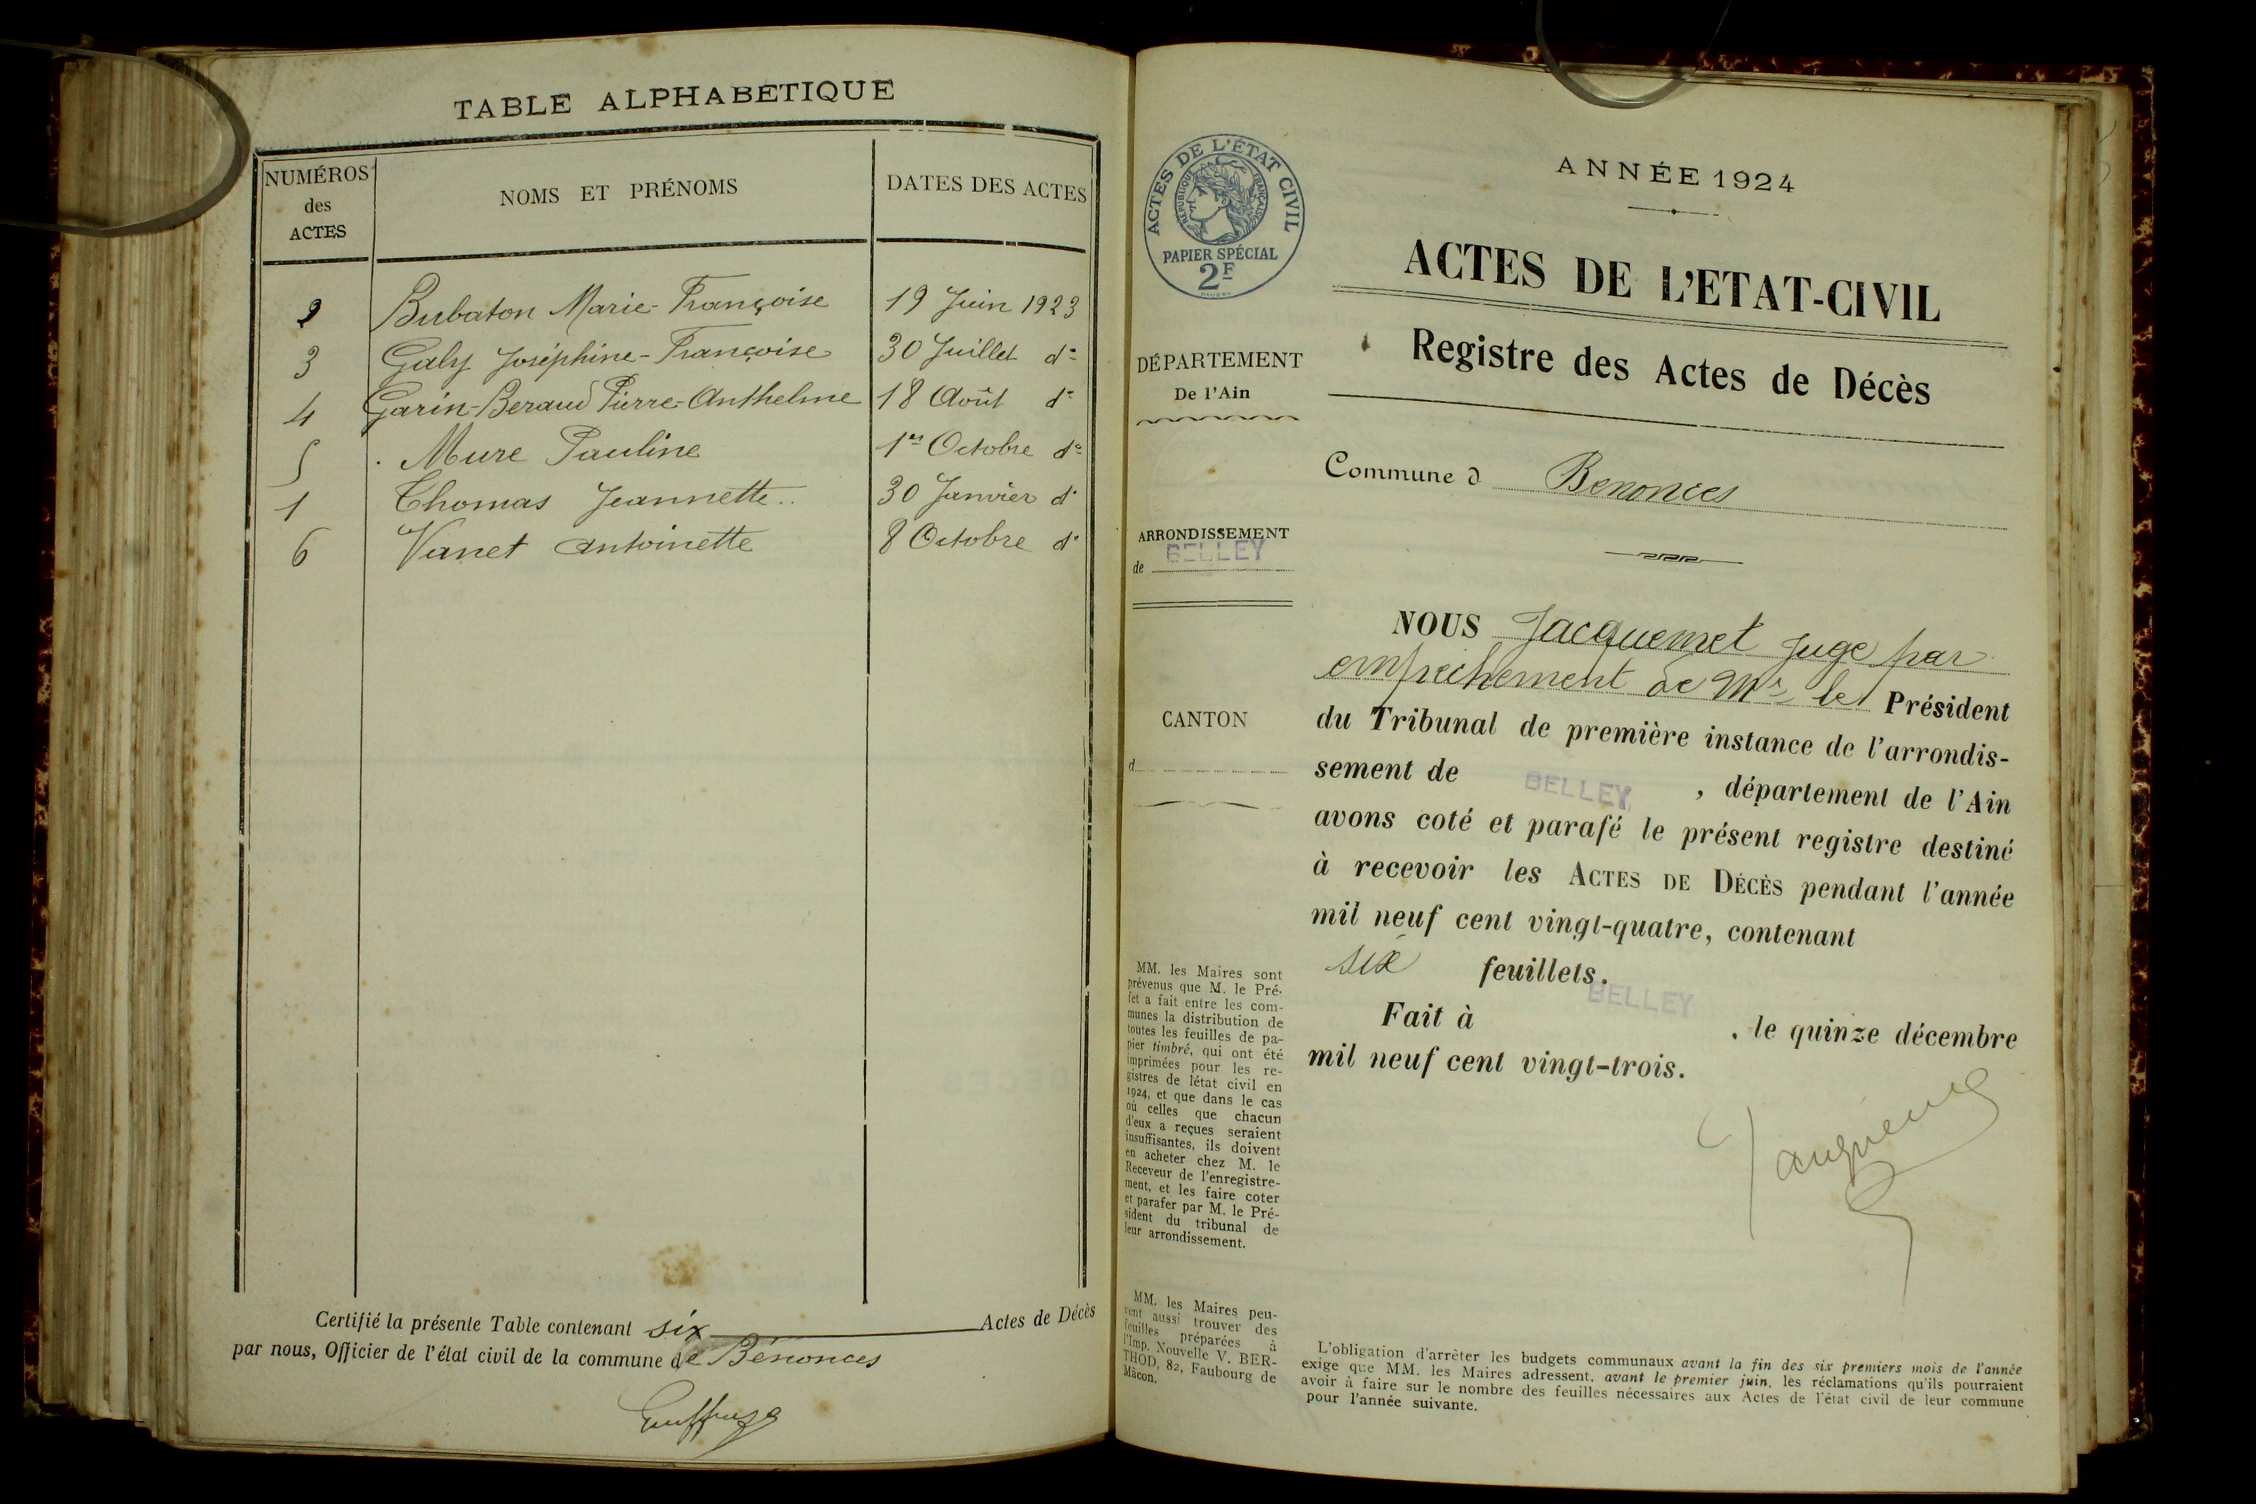 TABLE ALPHABÉTIQUE
NUMÉROS
des
ACTES
NOMS ET PRÉNOMS
DATES DES ACTES
2 Bubaton Marie-Françoise 19 Juin 1923
3 Galy Joséphine-Françoise 30 Juillet do
4 Garin-Beraud Pierre-Anthelme 18 Août do
5 Mure Pauline 1er Octobre do
1 Thomas Jeannette 30 Janvier do
6 Vanet Antoinette 8 Octobre do
Certifié la présente Table contenant six Actes de Décès
par nous, Officier de l'état civil de la commune de Bénonces
ACTES DE L'ÉTAT CIVIL
RÉPUBLIQUE FRANÇAISE
PAPIER SPÉCIAL
2F
DÉPARTEMENT
De l'Ain
ARRONDISSEMENT
de BELLEY
CANTON
d
MM. les Maires sont
prévenus que M. le Pré-
fet a fait entre les com-
munes la distribution de
toutes les feuilles de pa-
pier timbré, qui ont été
imprimées pour les re-
gistres de l'état civil en
1924, et que dans le cas
où celles que chacun
d'eux a reçues seraient
insuffisantes, ils doivent
en acheter chez M. le
Receveur de l'enregistre-
ment, et les faire coter
et parafer par M. le Pré-
sident du tribunal de
leur arrondissement.
MM. les Maires peu-
vent aussi trouver des
feuilles préparées à
l'Imp. Nouvelle V. BER-
THOD, 82, Faubourg de
Mâcon.
ANNÉE 1924
ACTES DE L'ETAT-CIVIL
Registre des Actes de Décès
Commune d Benonces
NOUS Jacquemet Juge par
empêchement de Mr le Président
du Tribunal de première instance de l'arrondis-
sement de BELLEY, département de l'Ain
avons coté et parafé le présent registre destiné
à recevoir les ACTES DE DÉCÈS pendant l'année
mil neuf cent vingt-quatre, contenant
six feuillets.
Fait à BELLEY, le quinze décembre
mil neuf cent vingt-trois.
L'obligation d'arrêter les budgets communaux avant la fin des six premiers mois de l'année
exige que MM. les Maires adressent, avant le premier juin, les réclamations qu'ils pourraient
avoir à faire sur le nombre des feuilles nécessaires aux Actes de l'état civil de leur commune
pour l'année suivante.